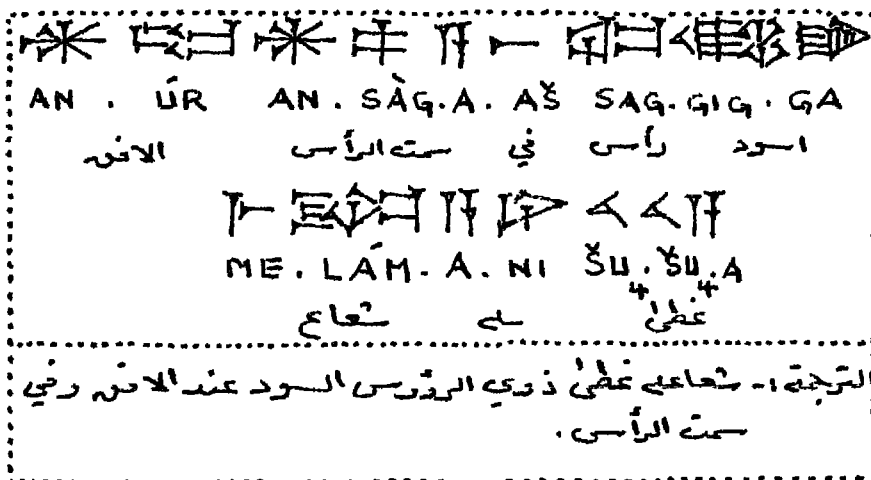 AN . ÚR AN . SÀG . A . AŠ SAG . GIG . GA
اسود رأس في سمت الرأس الافق
ME . LÁM . A . NI ŠU₄ . ŠU₄ . A
غطى ـه شعاع
الترجمة :- شعاعه غطى ذوي الرؤوس السود عند الافق وفي
سمت الرأس .